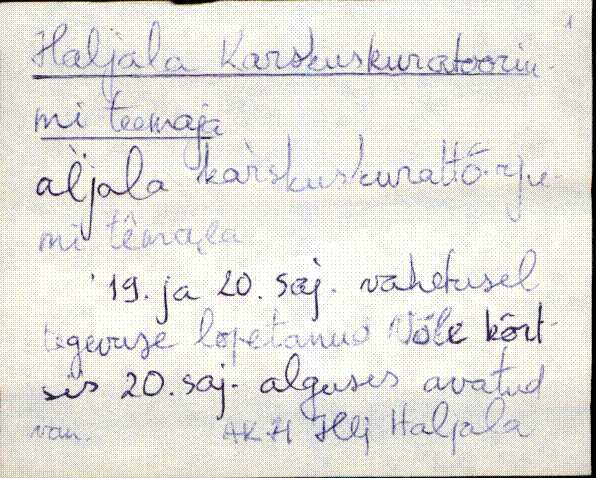 1
Haljala Karskuskuratooriu-
mi teemaja
aljala karskuskurattō·rju-
mi tēmaja
19. ja 20. saj. vahetusel
tegevuse lopetanud Võle kõrt-
sis 20. saj. alguses avatud
van. AK H Hlj Haljala